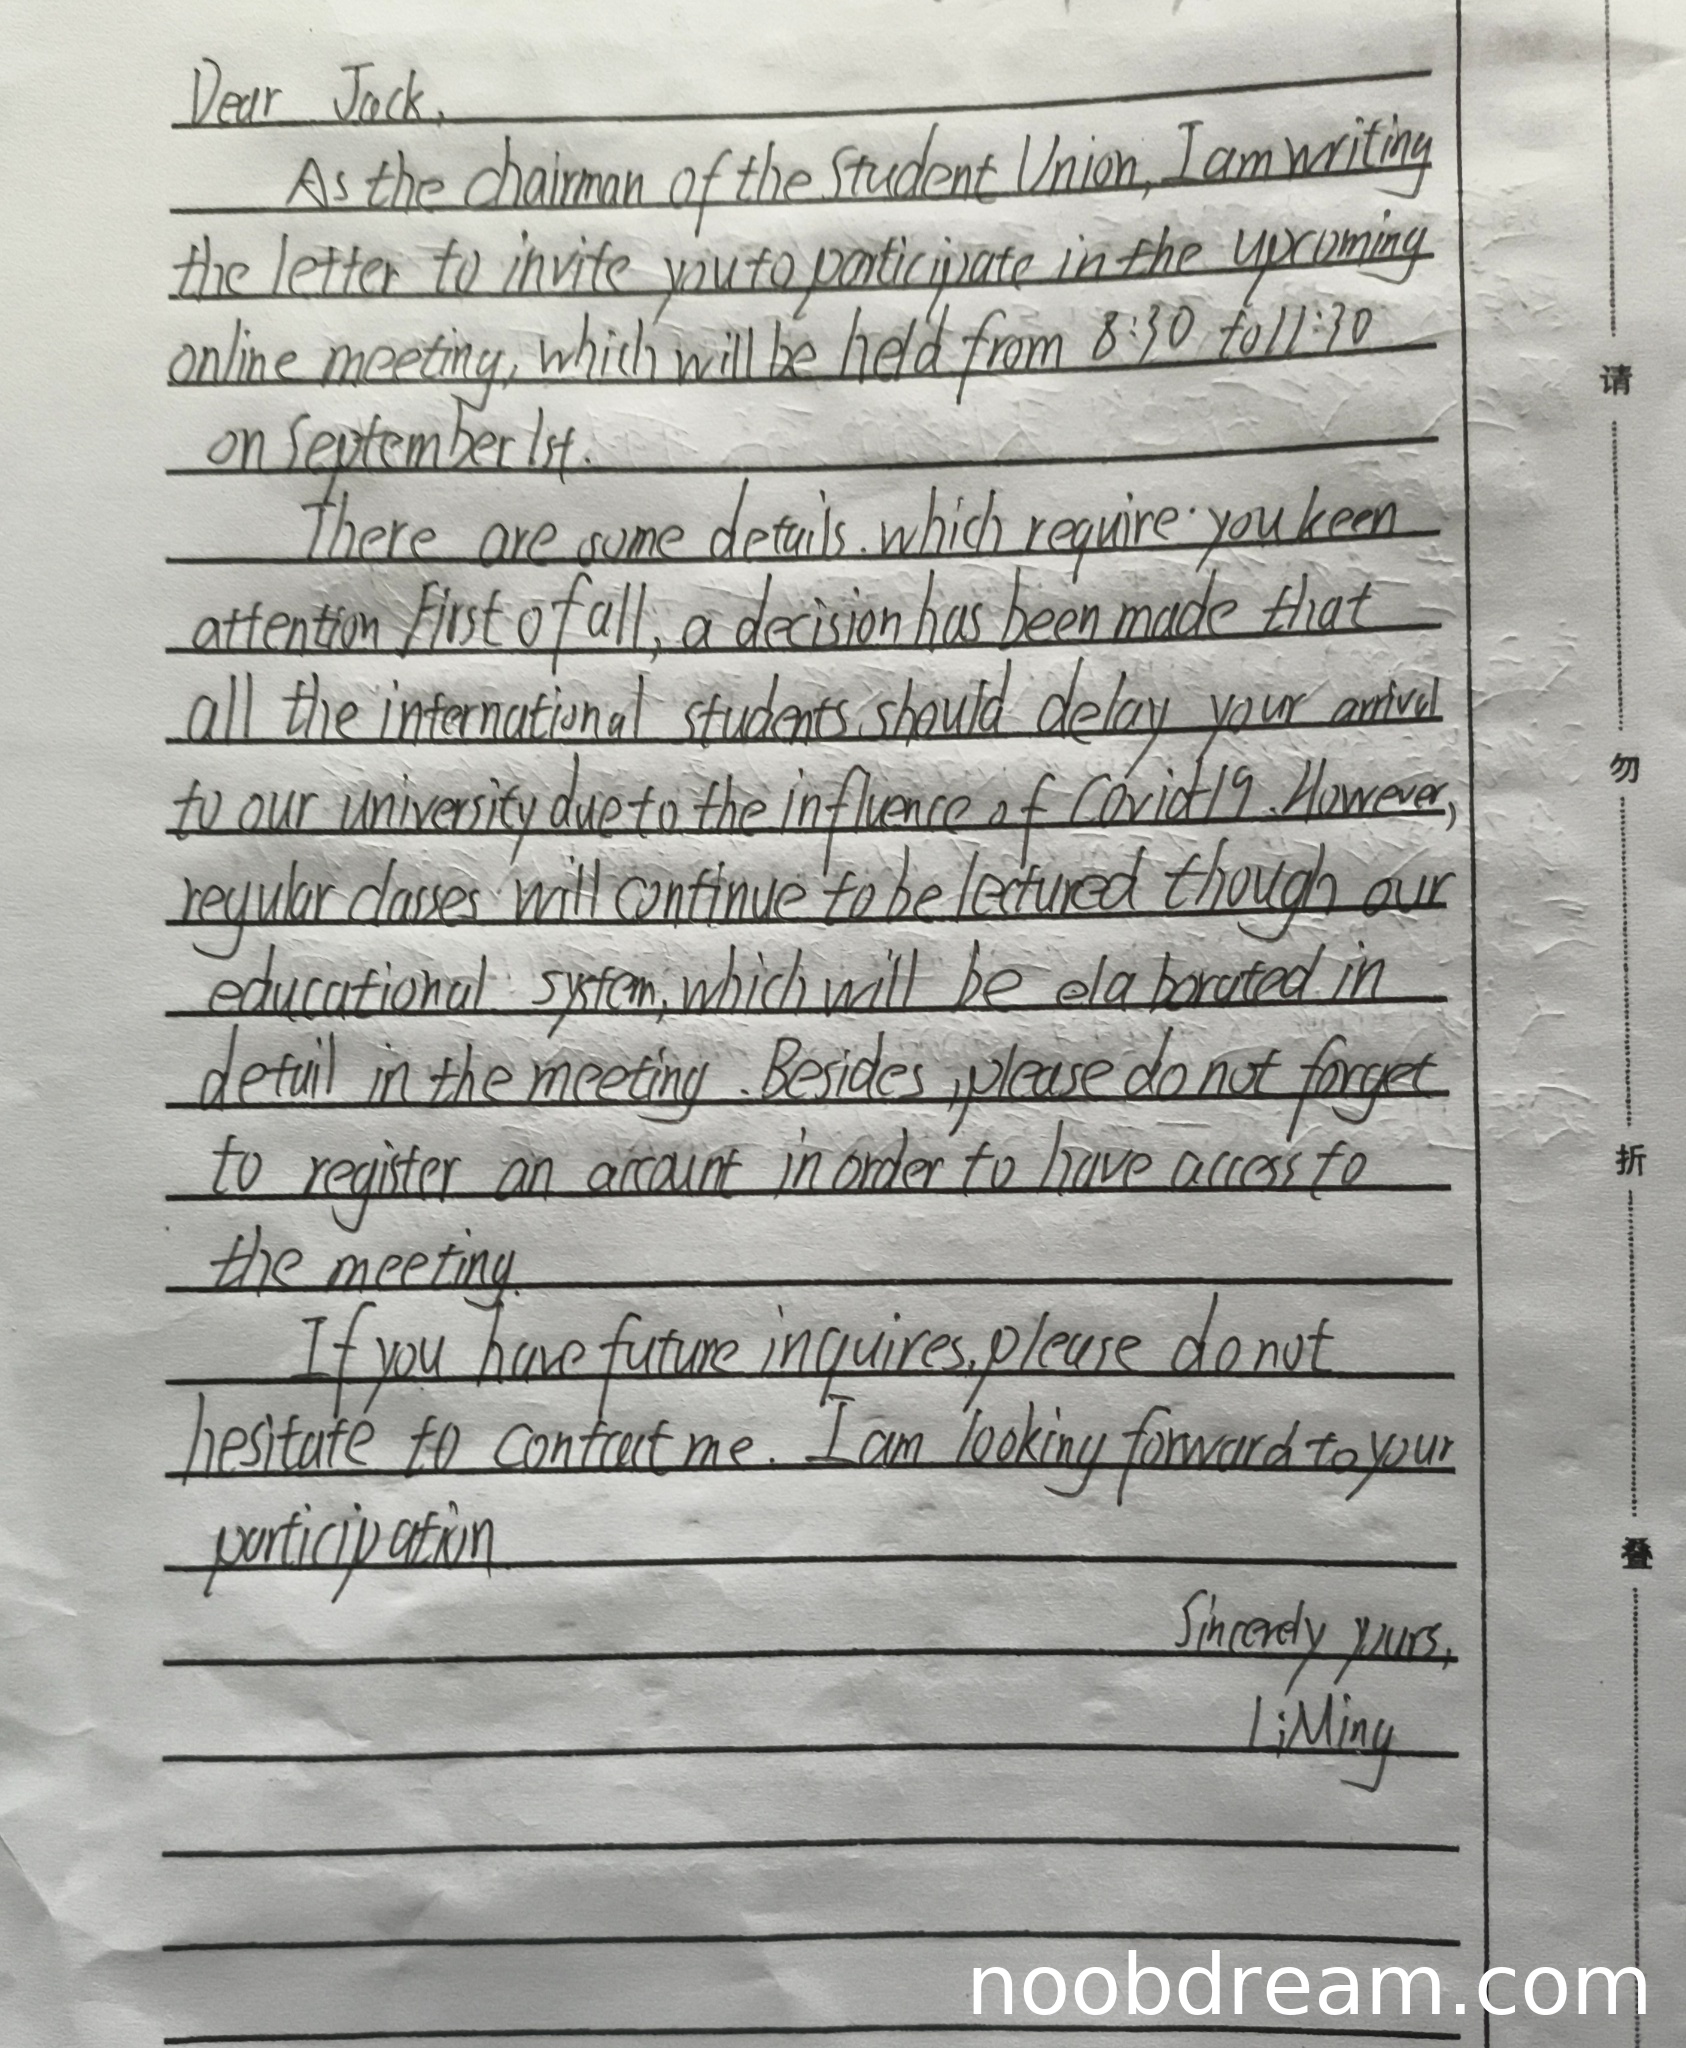 Dear Jack,
As the chairman of the Student Union, I am writing
the letter to invite you to participate in the upcoming
online meeting, which will be held from 8:30 to 11:30
on September 1st.
There are some details. which require you keen
attention First of all, a decision has been made that
all the international students should delay your arrival
to our university due to the influence of Covid19. However,
regular classes will continue to be lectured though our
educational system, which will be elaborated in
detail in the meeting. Besides, please do not forget
to register an account in order to have access to
the meeting.
If you have future inquires, please do not
hesitate to contact me. I am looking forward to your
participation
Sincerely yours,
Li Ming
请
勿
折
叠
noobdream.com